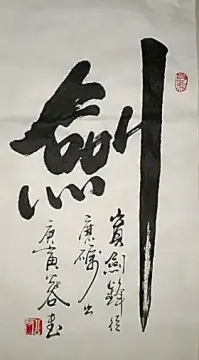 劍
寶劍鋒從
磨礪出
庚寅
書